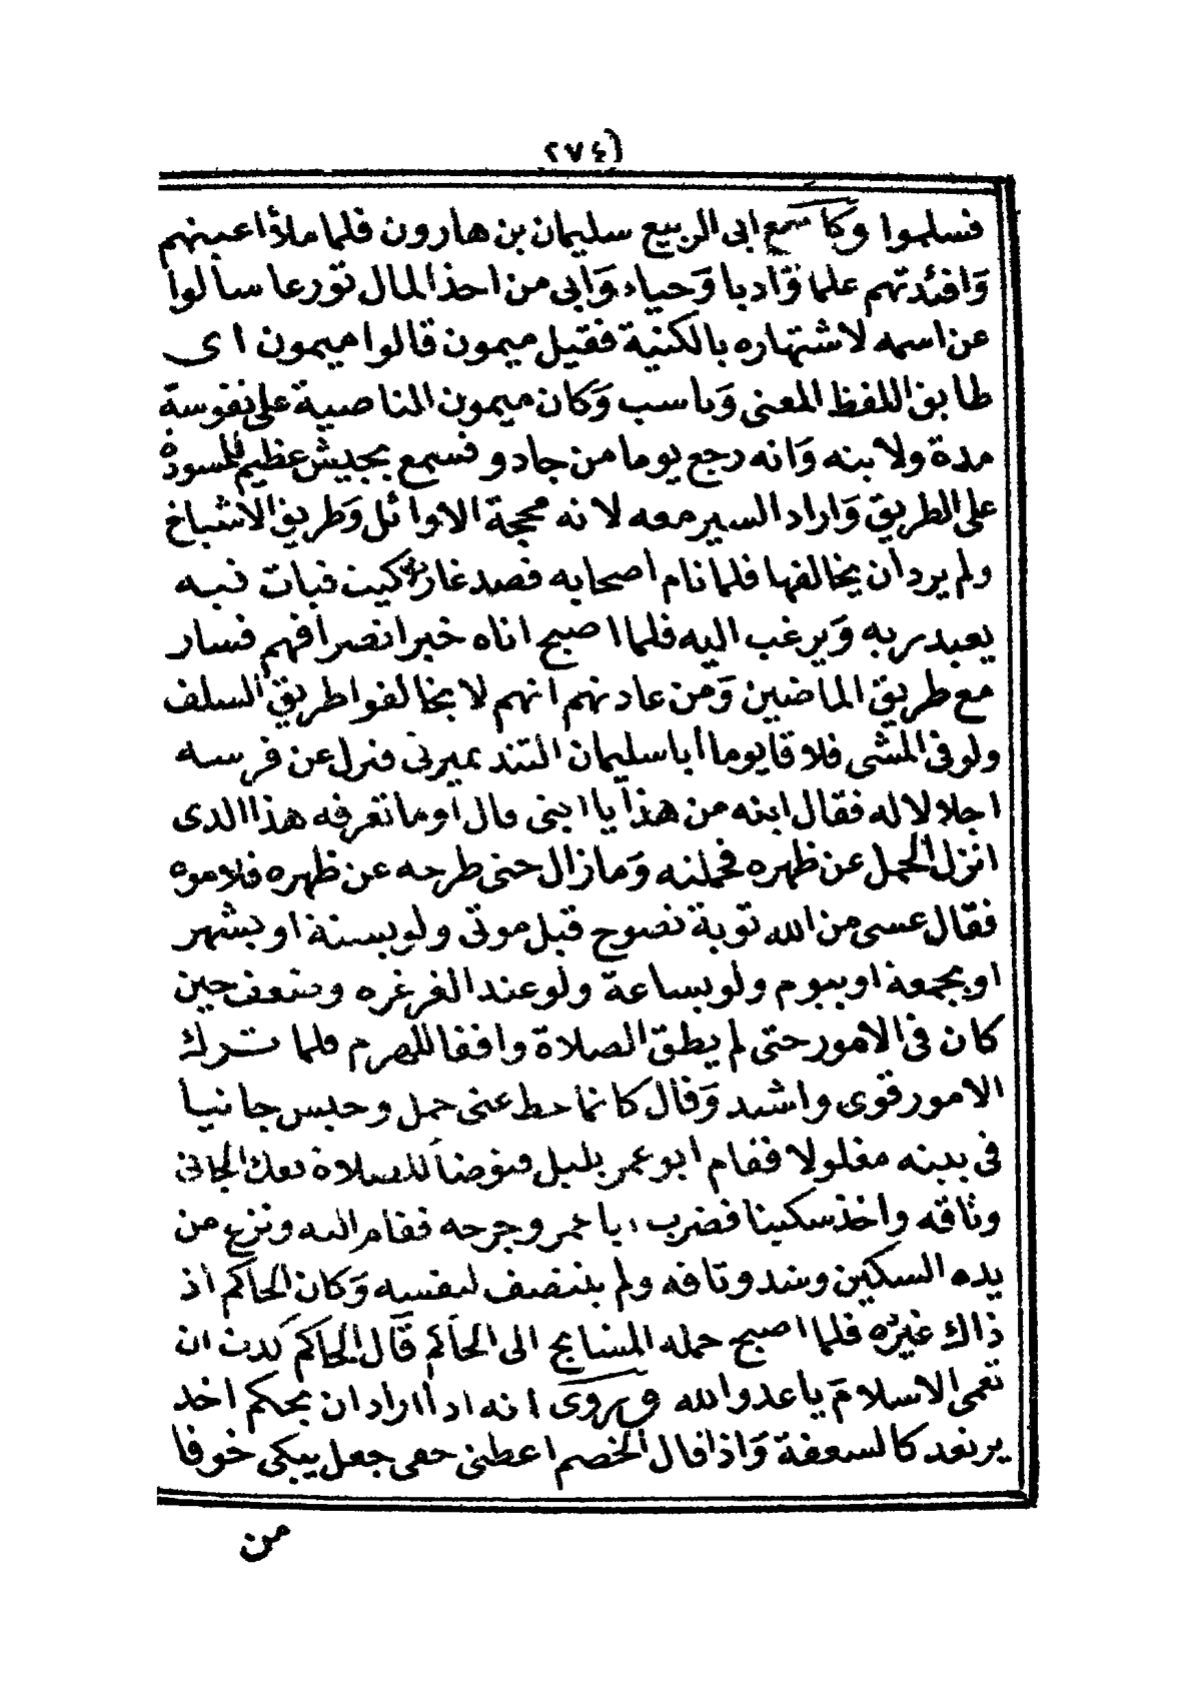 (٢٧٤
فسلموا وكا سمع ابى الربيع سليمان بن هارون فلما ملأ اعينهم
وَافئدتهم علما وَادبا وَحياء وَابى من اخذ المال تورعا سألوا
عن اسمه لاشتهاره بالكنية فقيل ميمون قالوا ميمون اى
طابق اللفظ المعنى وَناسب وَكان ميمون المناصبة على نفوسة
مدة ولابنه وَانه رجع يوما من جادو فسمع بجيش عظيم للمسودة
على الطريق وَاراد السير معه لانه محجة الاوائل وَطريق الاشياخ
ولم يرد ان يخالفها فلما نام اصحابه قصد غار كيت فبات فيه
يعبد ربه وَيرغب اليه فلما اصبح اتاه خبر انصرافهم فسار
مع طريق الماضين وَمن عادتهم انهم لا يخالفوا طريق السلف
ولو فى المشى فلاقا يوما أبا سليمان التندميرتى فنزل عن فرسه
اجلالا له فقال ابنه من هذا يا ابنى قال أوما تعرفه هذا الذى
انزل الحمل عن ظهره فحملته وَمازال حتى طرحه عن ظهره فلاموه
فقال عسى من الله توبة نصوح قبل موتى ولو بسنة او بشهر
او بجمعة او بيوم ولو بساعة ولو عند الغرغره وضعف حين
كان فى الامور حتى لم يطق الصلاة واقفا للهرم فلما ترك
الامور قوى واشتد وَقال كانما حط عنى حمل وحبس جانيا
فى بيته مغلولا فقام ابو عمر بليل فتوضأ للصلاة ففك الجانى
وثاقه واخذ سكينا فضرب ابا عمر وجرحه فقام اليه ونزع من
يده السكين وشد وثاقه ولم ينتصف لنفسه وَكان الحاكم اذ
ذاك غيره فلما اصبح حمله المشايخ الى الحاكم قال الحاكم كدت ان
تعمى الاسلام يا عدو الله ويروى انه اذا اراد ان يحكم اخذ
يرتعد كالسعفة وَاذا قال الخصم اعطنى حقى جعل يبكى خوفا
من